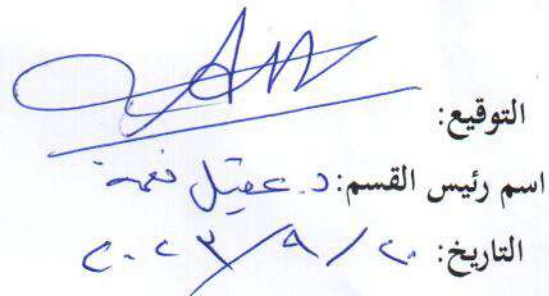 التوقيع:
اسم رئيس القسم: د. عقيل نعمة
التاريخ: ٢٠ / ٩ / ٢٠٢٣